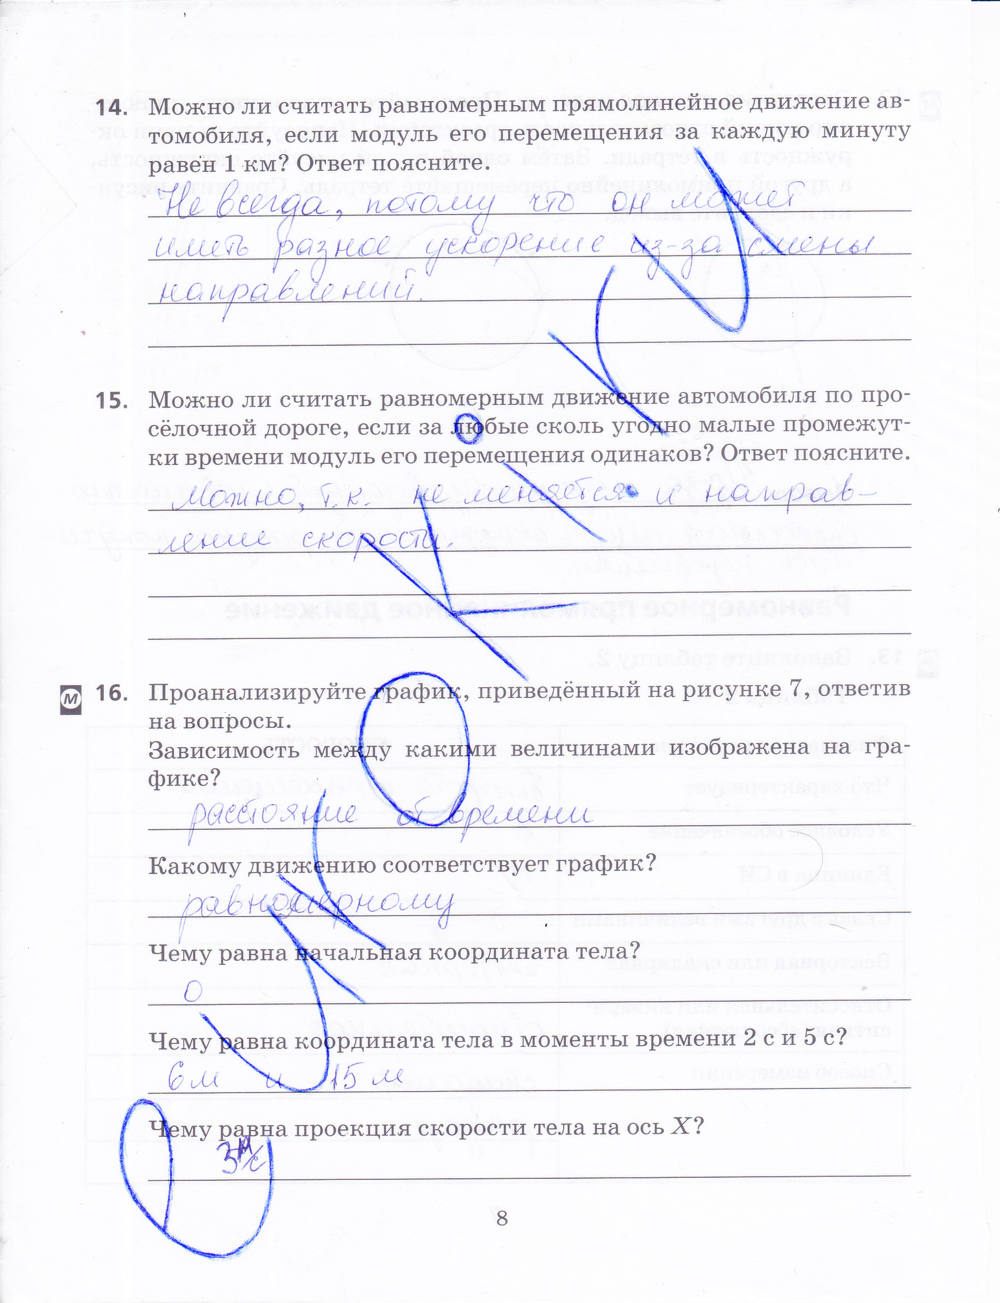 14. Можно ли считать равномерным прямолинейное движение ав-
томобиля, если модуль его перемещения за каждую минуту
равен 1 км? Ответ поясните.
Не всегда, потому что он может
иметь разное ускорение из-за смены
направлений.
15. Можно ли считать равномерным движение автомобиля по про-
сёлочной дороге, если за любые сколь угодно малые промежут-
ки времени модуль его перемещения одинаков? Ответ поясните.
Можно, т.к. не меняется и направ-
ление скорости.
М 16. Проанализируйте график, приведённый на рисунке 7, ответив
на вопросы.
Зависимость между какими величинами изображена на гра-
фике?
расстояние от времени
Какому движению соответствует график?
равномерному
Чему равна начальная координата тела?
0
Чему равна координата тела в моменты времени 2 с и 5 с?
6 м и 15 м
Чему равна проекция скорости тела на ось X?
3 м/с
8